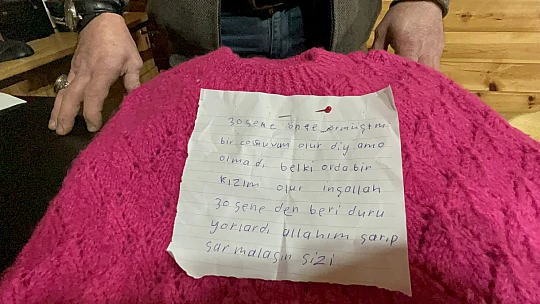 30 sene önce örmüştm
bir cocuğum olur diy ama
olmadı belki orda bir
kızım olur inşallah
30 sene den beri duru
yorlardı allahım sarıp
sarmalasın sizi